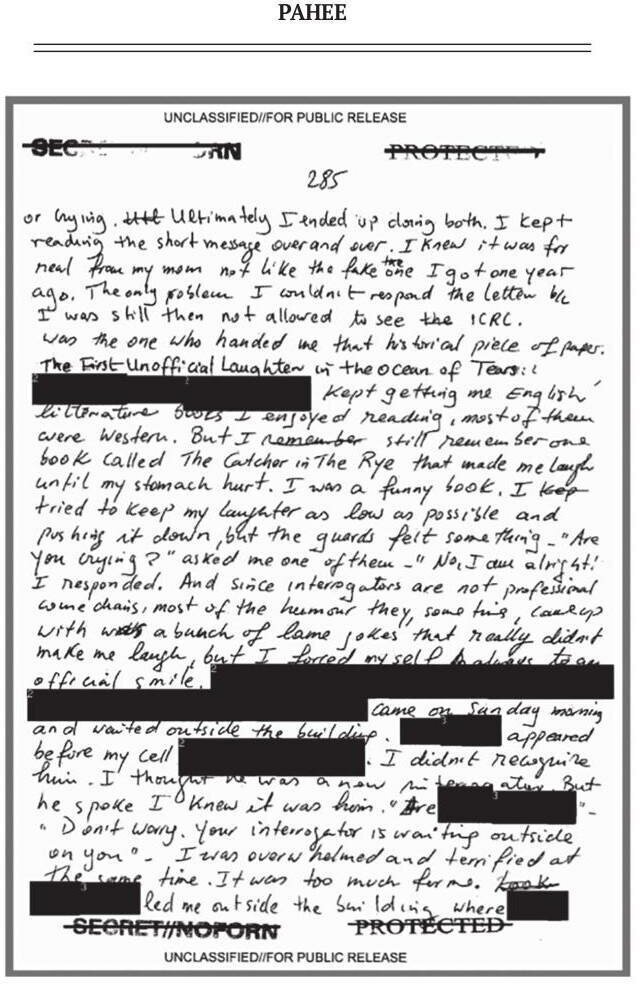 PAHEE
UNCLASSIFIED//FOR PUBLIC RELEASE
SEC RN PROTECTE
285
or crying. Ultimately I ended up doing both. I kept
reading the short message over and over. I knew it was for
real from my mom not like the fake the one I got one year
ago. The only problem I couldn't respond the letter b/c
I was still then not allowed to see the ICRC.
was the one who handed me that historical piece of paper.
The First Unofficial Laughter in the ocean of Tears::
kept getting me English
litterature books I enjoyed reading, most of them
were Western. But I remember still remember one
book called The Catcher in The Rye that made me laugh
until my stomach hurt. I was a funny book. I kep
tried to keep my laughter as low as possible and
pushing it down, but the guards felt something - "Are
you crying?" asked me one of them - "No, I am alright!
I responded. And since interrogators are not professional
comedians, most of the humour they, some time, came up
with was a bunch of lame jokes that really didn't
make me laugh, but I forced my self always to an
official smile.
came on Sunday morning
and waited outside the building. appeared
before my cell . I didn't recognize
him. I thought he was a new interrogator. But
he spoke I knew it was him. "Are "-
"Don't worry. Your interrogator is waiting outside
on you" - I was overwhelmed and terrified at
the same time. It was too much for me. Look
led me outside the building where
SECRET//NOFORN PROTECTED
UNCLASSIFIED//FOR PUBLIC RELEASE